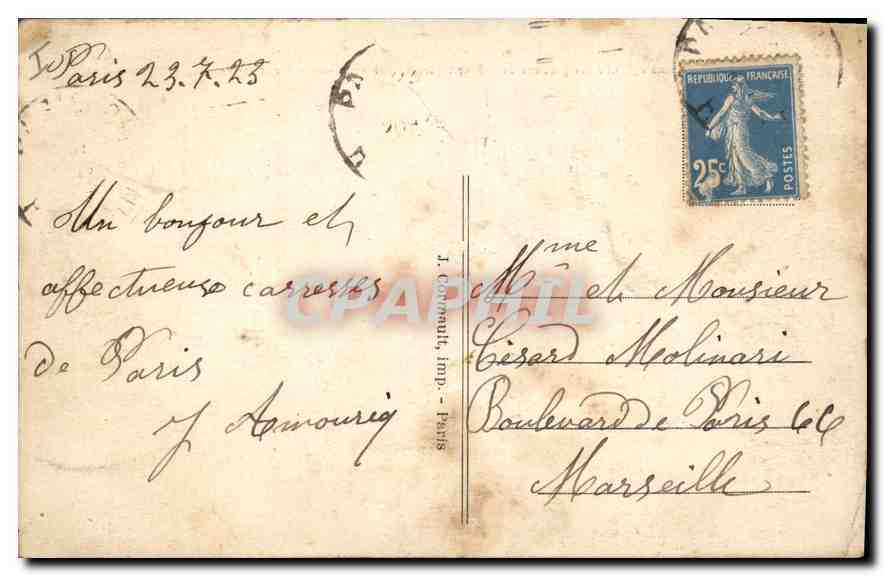 Paris 23.7.23
Un bonjour et
affectueuse carresses
de Paris
J Amouriq
J. Cormault, imp. - Paris
REPUBLIQUE FRANÇAISE
25c
POSTES
CPAPHIL
Mme et Monsieur
Césard Molinari
Boulevard de Paris 66
Marseille